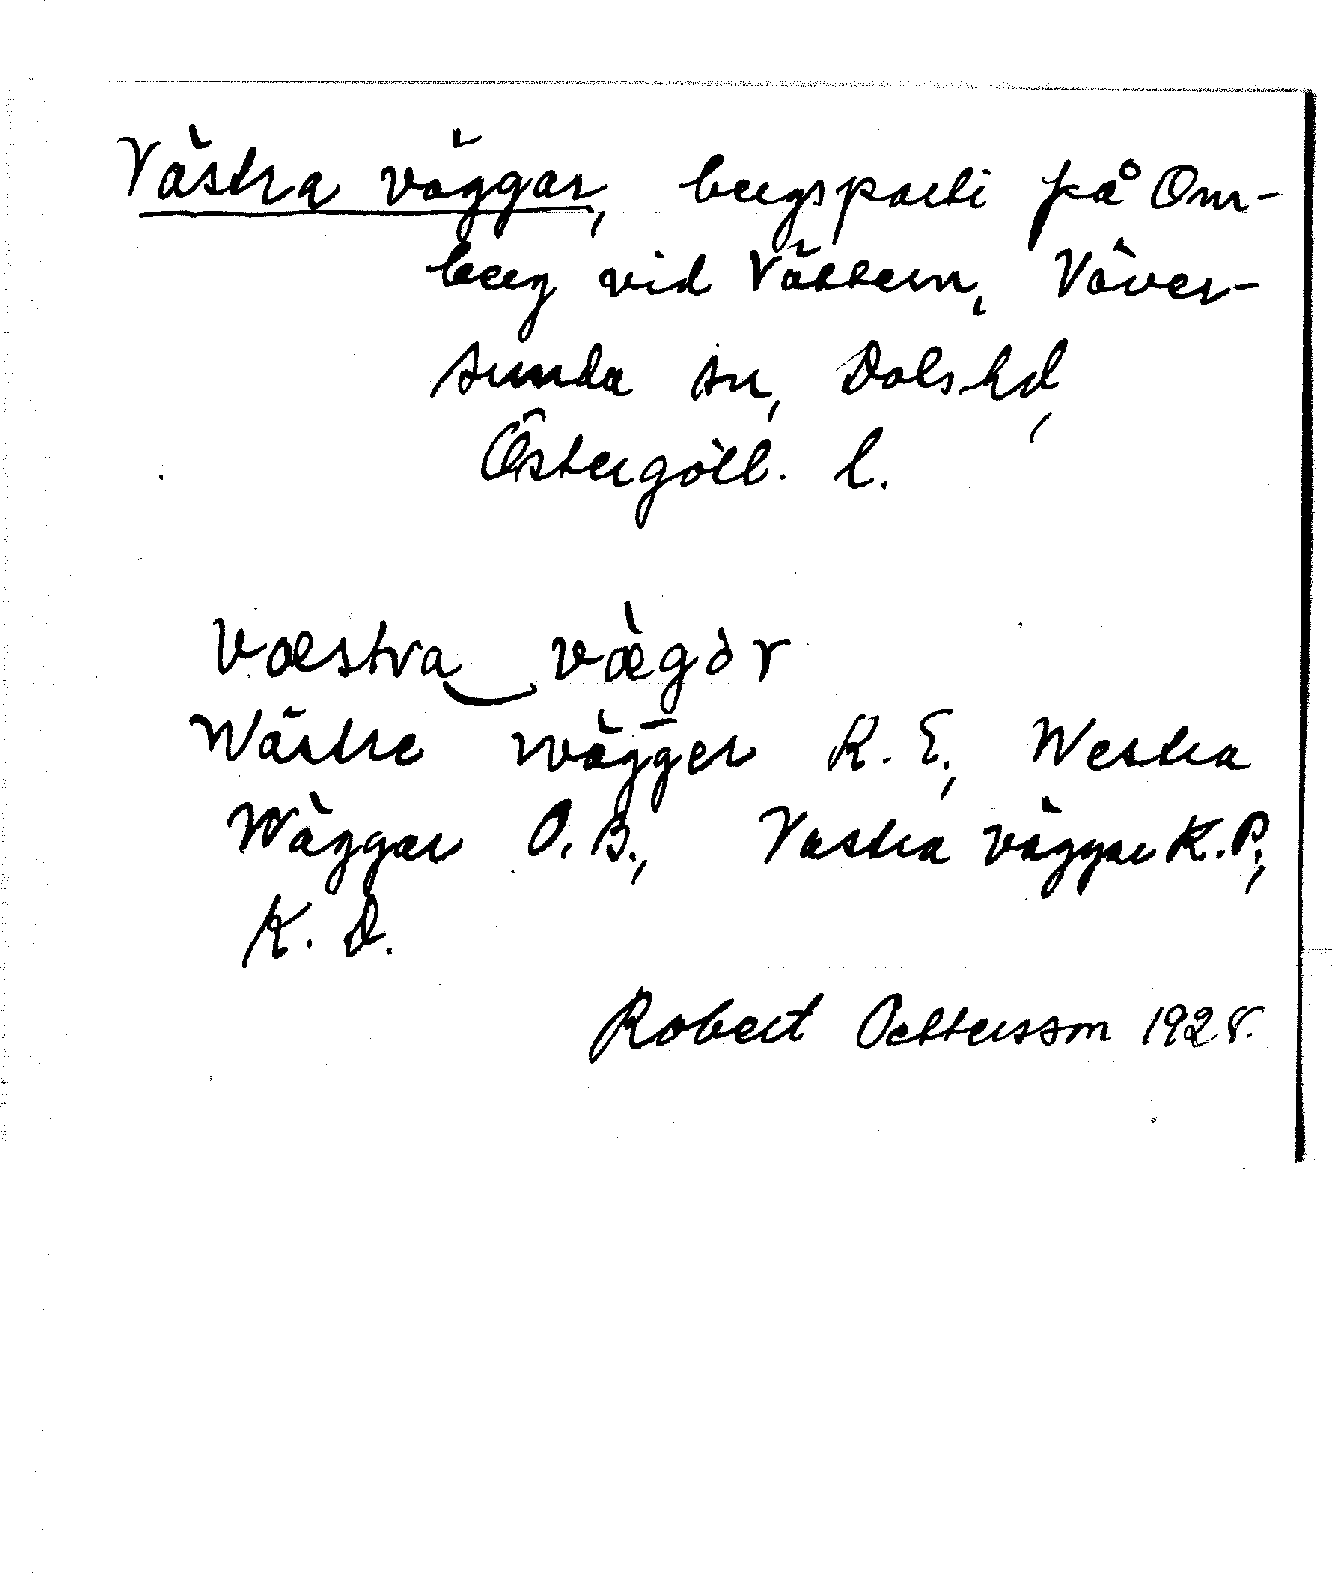 Västra väggar, bergsparti på Om-
berg vid Vättern, Väver-
sunda sn, Dals hd,
Östergötl. l.
væstra vægàr
Wästre wägger R. E., Westra
Wäggar O. B., Västra väggar K. P.,
K. D.
Robert Pettersson 1928.